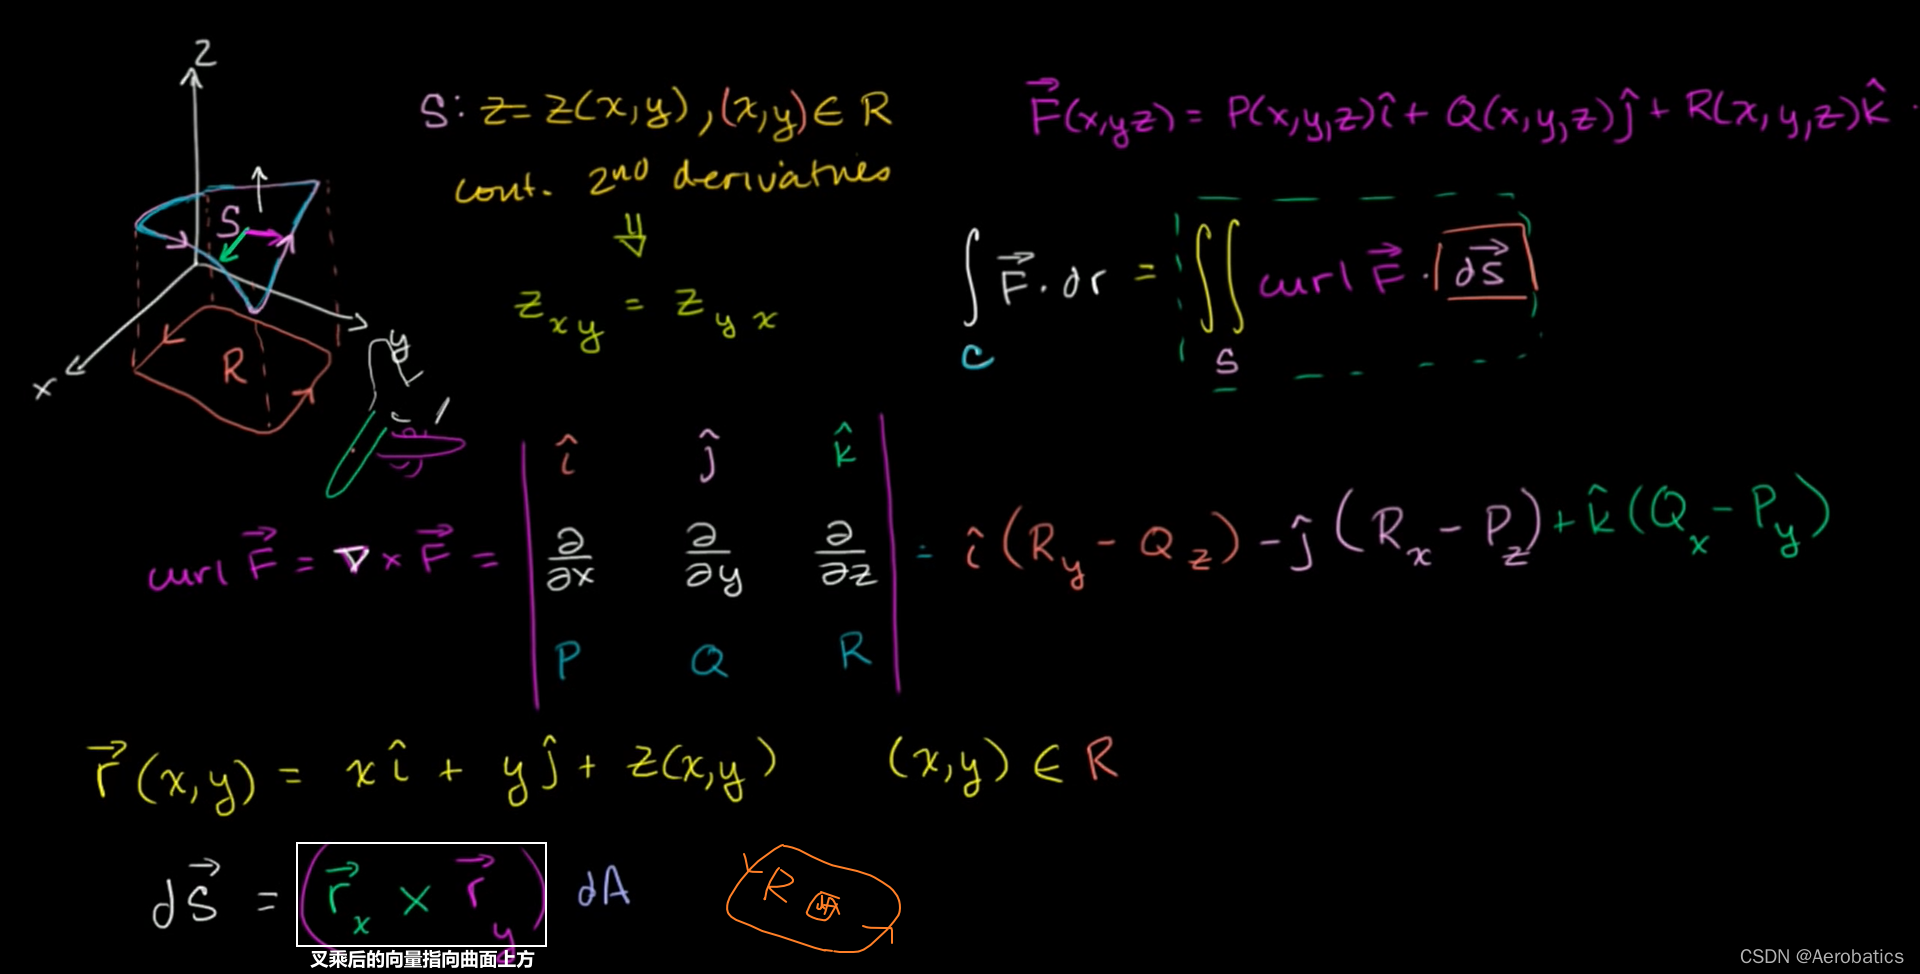 z
S
y
x
R
S: z = z(x,y), (x,y) ∈ R
cont. 2nd derivatives
⇓
z_xy = z_yx
F⃗(x,yz) = P(x,y,z)î + Q(x,y,z)ĵ + R(x,y,z)k̂
∫_C F⃗ · dr = ∬_S curl F⃗ · dS⃗
curl F⃗ = ∇ × F⃗ = | î ĵ k̂ |
| ∂/∂x ∂/∂y ∂/∂z | = î(R_y − Q_z) − ĵ(R_x − P_z) + k̂(Q_x − P_y)
| P Q R |
r⃗(x,y) = xî + yĵ + z(x,y) (x,y) ∈ R
dS⃗ = (r⃗_x × r⃗_y) dA
R dA
叉乘后的向量指向曲面上方
CSDN @Aerobatics